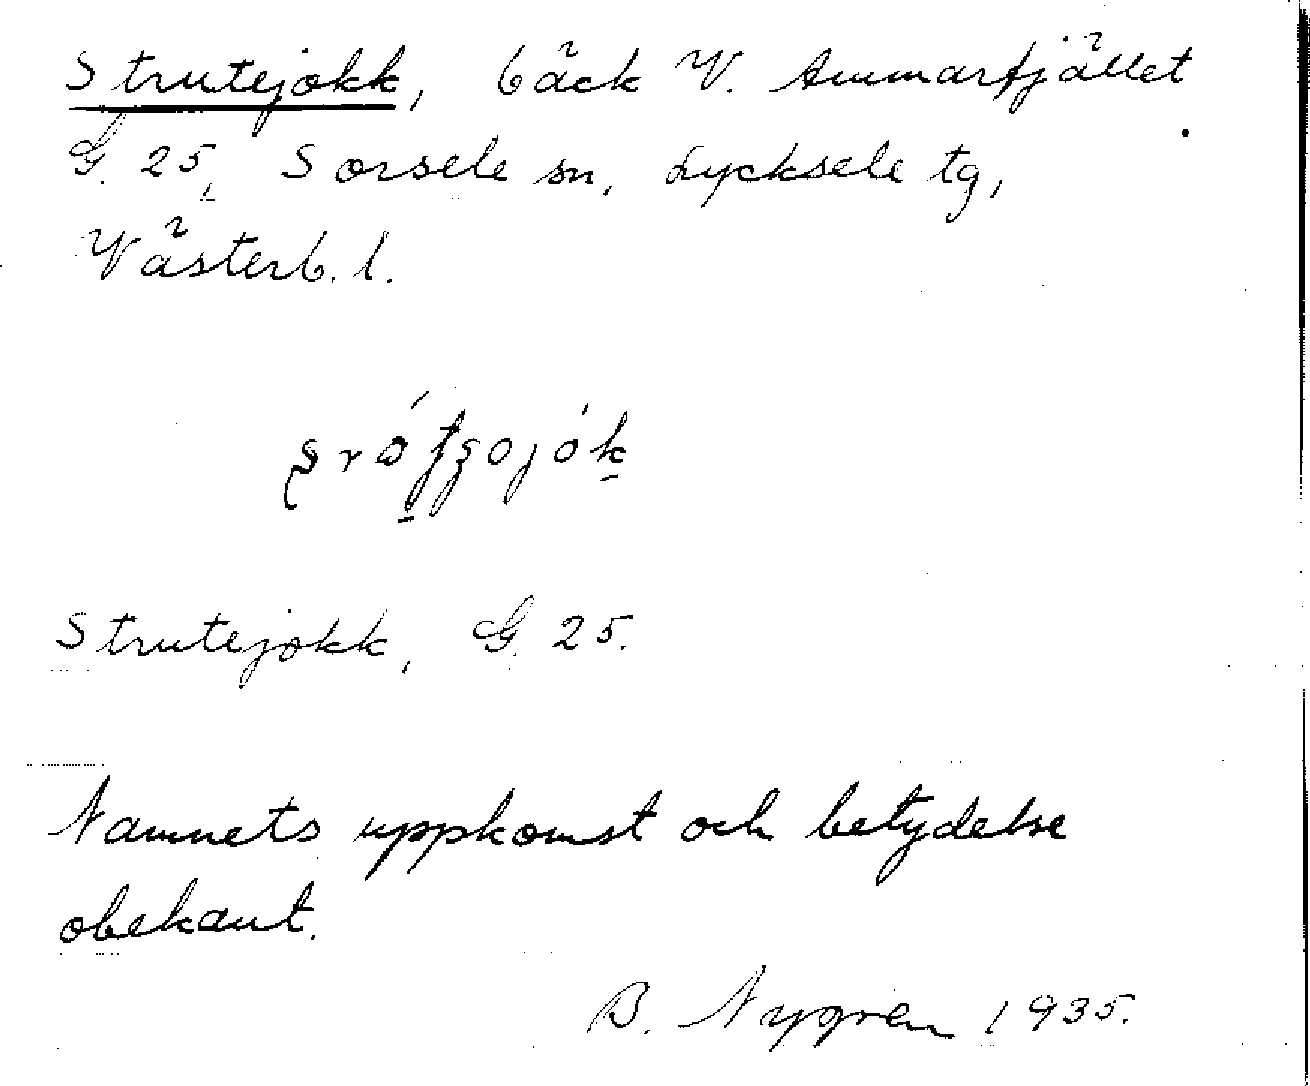 Strutejokk, bäck V. Ammarfjället
G. 25, Sorsele sn, Lycksele tg,
Västerb. l.
Strutejokk, G. 25.
Namnets uppkomst och betydelse
obekant.
B. Nygren 1935.